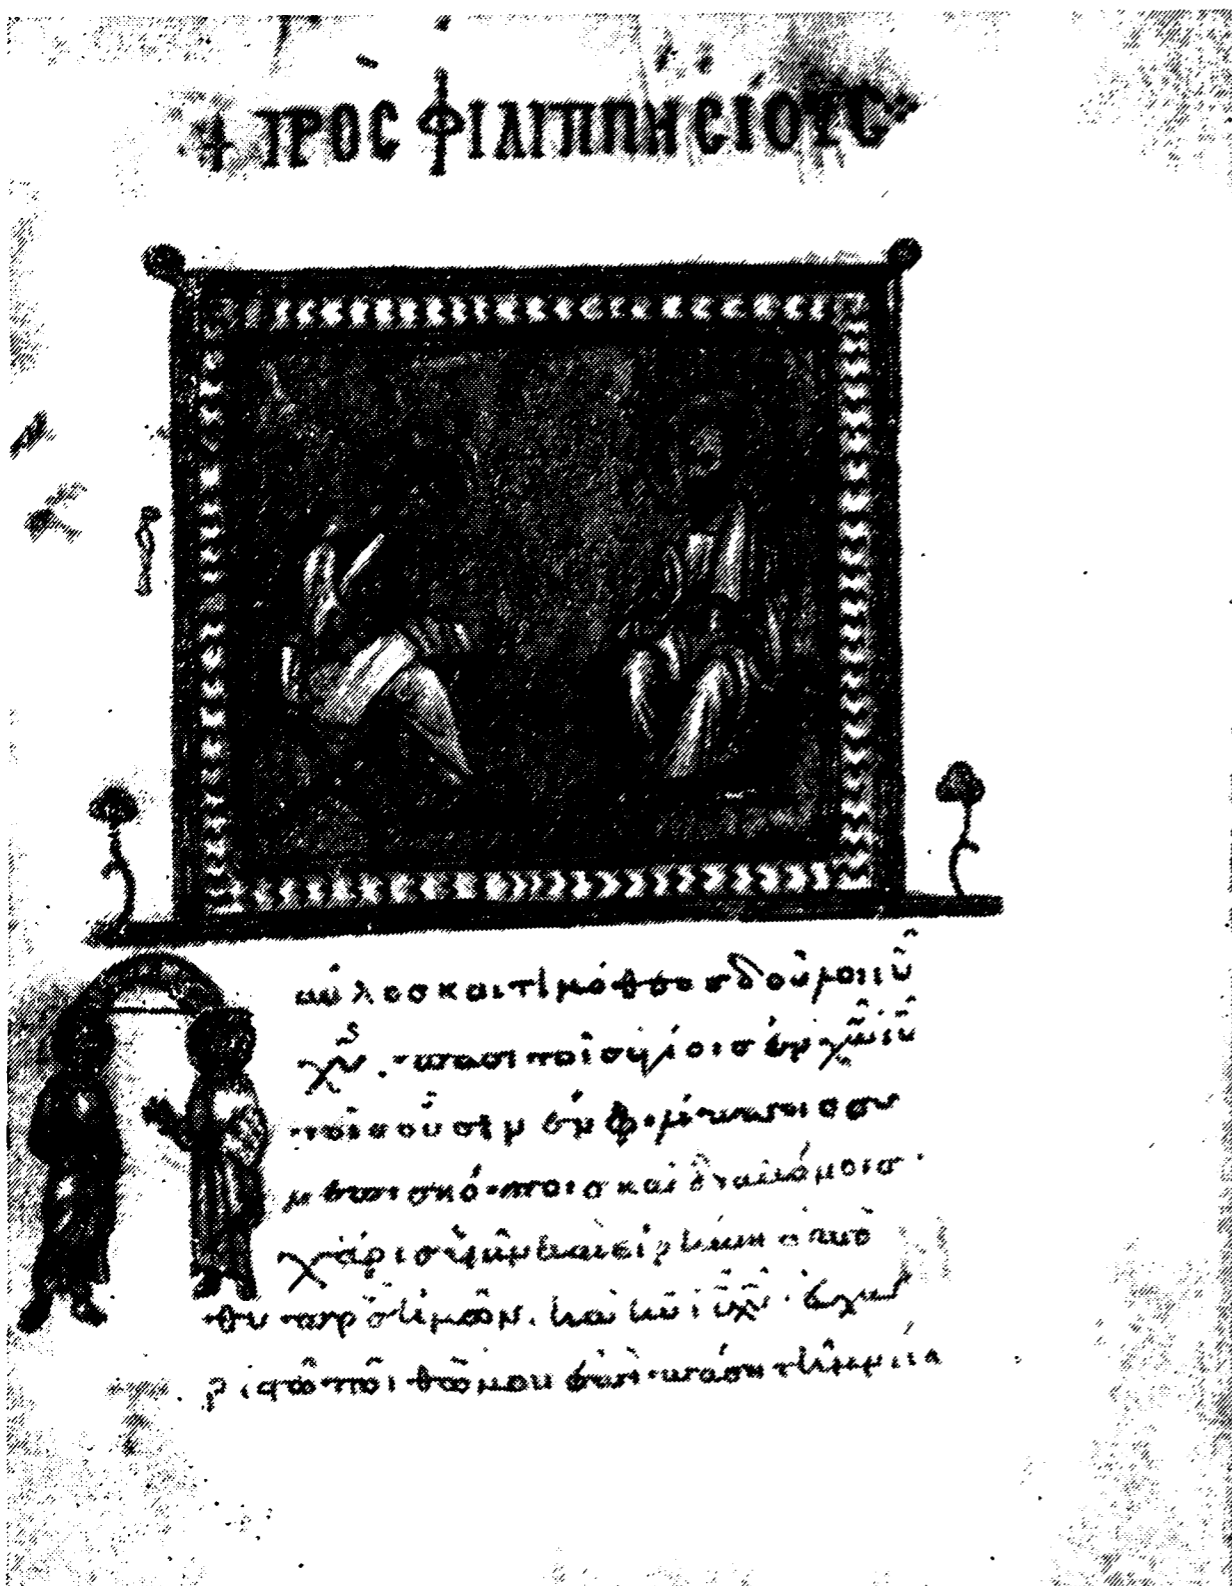 + ΠΡΟC ΦΙΛΙΠΠΗCΙΟΥC
αῦλοσ καὶ τιμόθεοσ δοῦλοι ιῦ
χῦ· πᾶσι τοῖσ ἁγίοισ ἐν χῶ ιῦ
τοῖσ οὖσιν ἐν φιλίπποισ συ
νεπισκόποισ καὶ διακόνοισ·
χάρισ ὑμῖν καὶ εἰρήνη ἀπὸ
θυ πρσ ἡμῶν. καὶ κυ ιῦ χῦ· εὐχα
ριστῶ τῶ θῶ μου ἐπὶ πάση τῆ μνεία